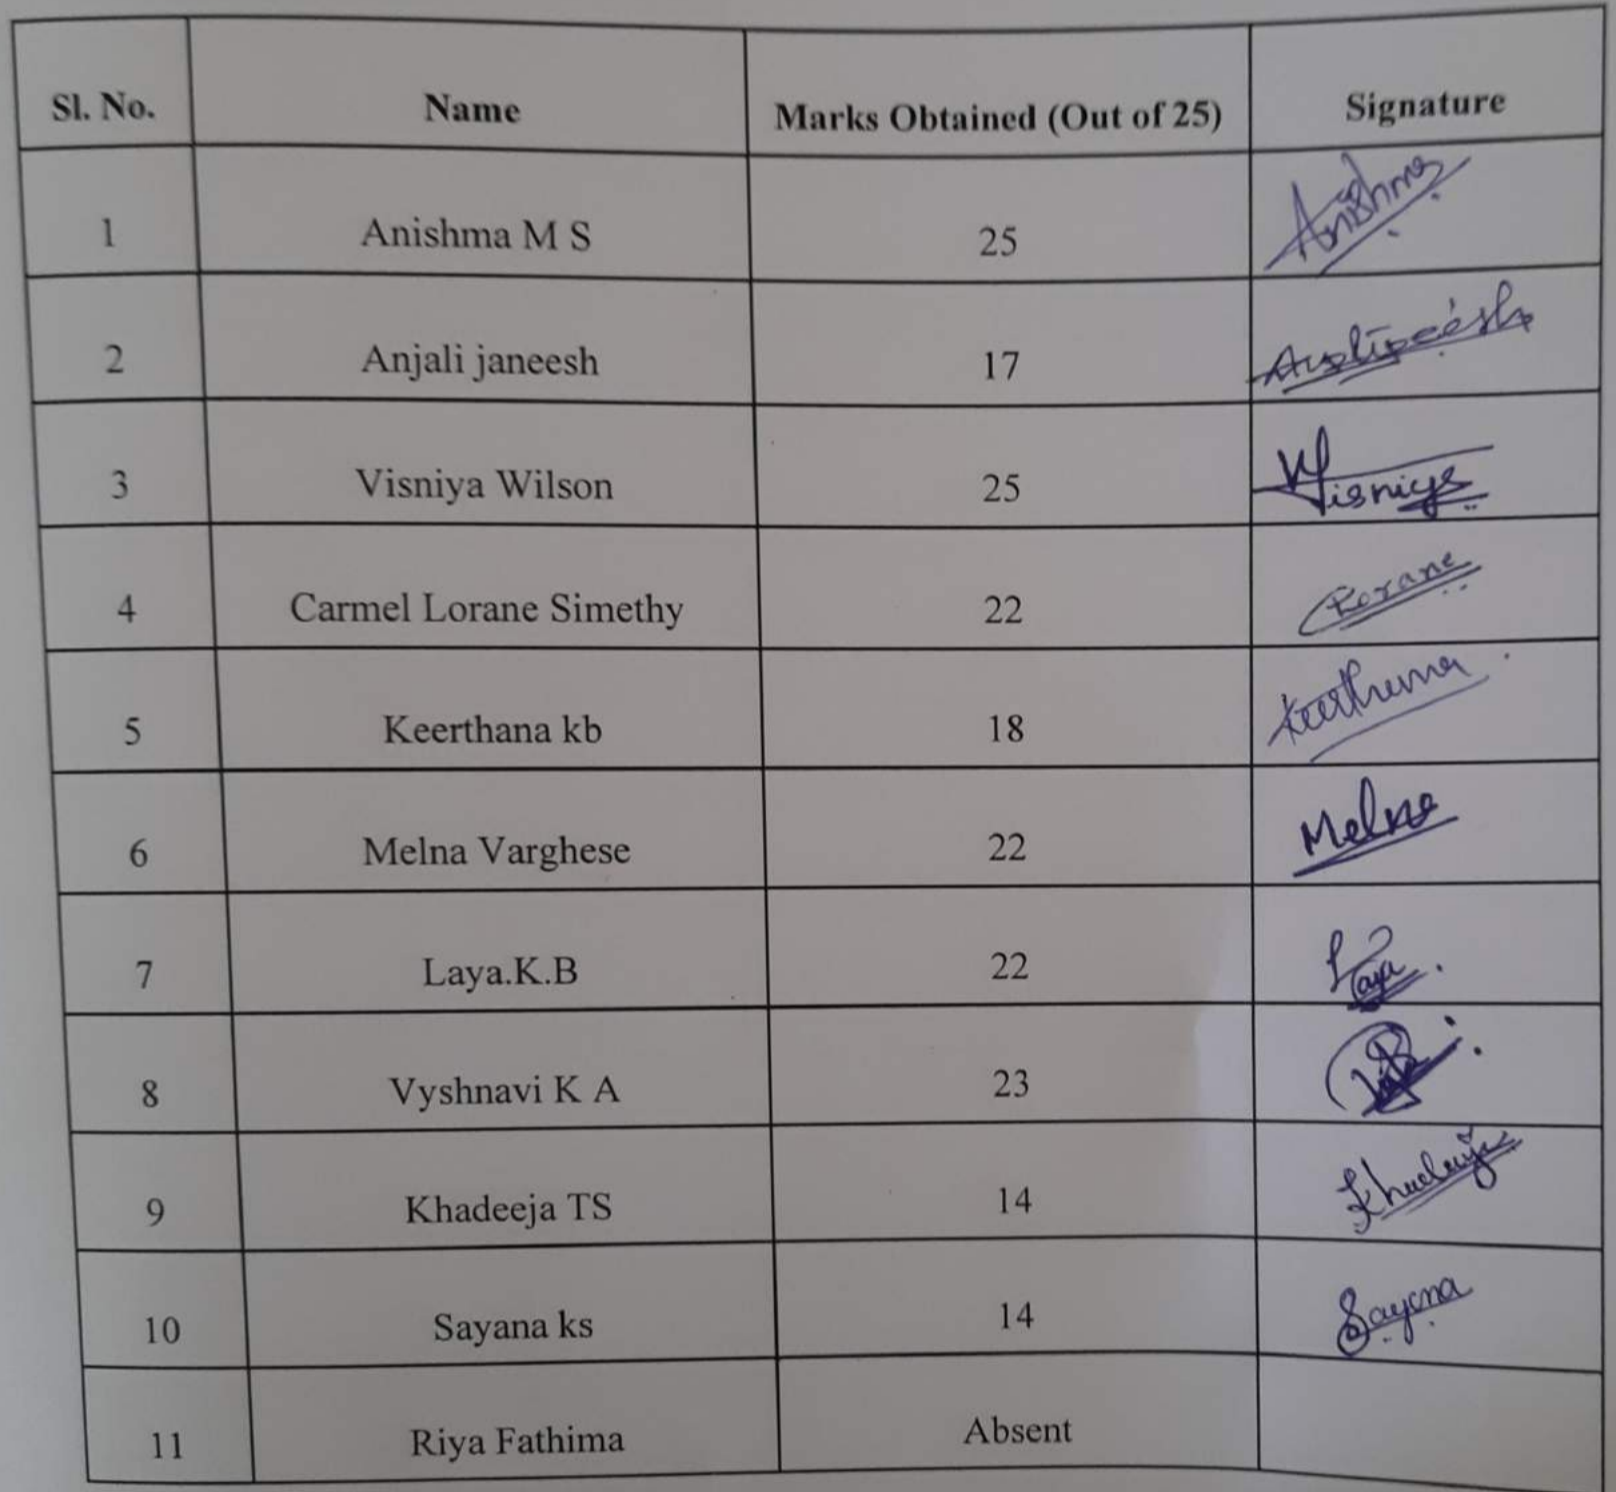 Sl. No. Name Marks Obtained (Out of 25) Signature
1 Anishma M S 25 Anishma
2 Anjali janeesh 17
3 Visniya Wilson 25 Visniya
4 Carmel Lorane Simethy 22 Lorane
5 Keerthana kb 18 Keerthana
6 Melna Varghese 22 Melna
7 Laya.K.B 22 Laya
8 Vyshnavi K A 23
9 Khadeeja TS 14 Khadeeja
10 Sayana ks 14 Sayana
11 Riya Fathima Absent